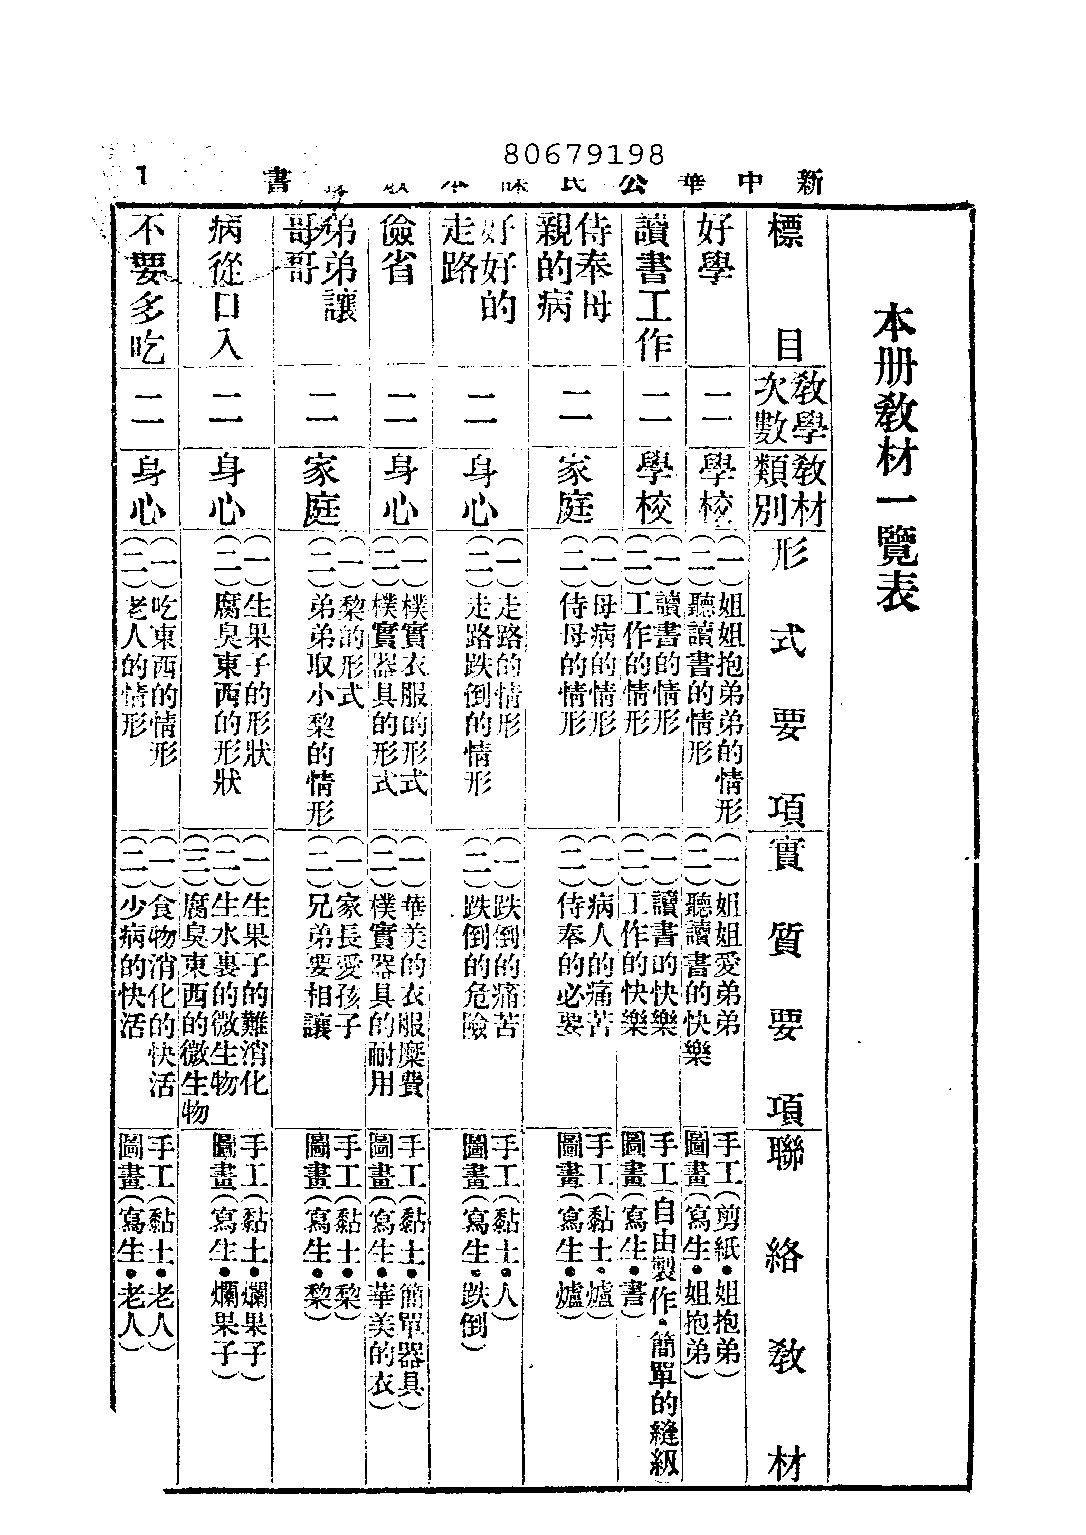 80679198
新中華公民課本教授書
1
本册教材一覽表
標目
教學次數
教材類別
形式要項
實質要項
聯絡教材
好學
二
學校
(一)姐姐抱弟弟的情形
(二)聽讀書的情形
(一)姐姐愛弟弟
(二)聽讀書的快樂
手工(剪紙•姐抱弟)
圖畫(寫生•姐抱弟)
讀書工作
二
學校
(一)讀書的情形
(二)工作的情形
(一)讀書的快樂
(二)工作的快樂
手工(自由製作•簡單的縫級)
圖畫(寫生•書)
侍奉母親的病
二
家庭
(一)母病的情形
(二)侍母的情形
(一)病人的痛苦
(二)侍奉的必要
手工(黏土•爐)
圖畫(寫生•爐)
好好的走路
二
身心
(一)走路的情形
(二)走路跌倒的情形
(一)跌倒的痛苦
(二)跌倒的危險
手工(黏土•人)
圖畫(寫生•跌倒)
儉省
二
身心
(一)樸實衣服的形式
(二)樸實器具的形式
(一)華美的衣服糜費
(二)樸實器具的耐用
手工(黏土•簡單器具)
圖畫(寫生•華美的衣)
弟弟讓哥哥
二
家庭
(一)黎的形式
(二)弟弟取小黎的情形
(一)家長愛孩子
(二)兄弟要相讓
手工(黏土•黎)
圖畫(寫生•黎)
病從口入
二
身心
(一)生果子的形狀
(二)腐臭東西的形狀
(一)生果子的難消化
(二)生水裏的微生物
(三)腐臭東西的微生物
手工(黏土•爛果子)
圖畫(寫生•爛果子)
不要多吃
二
身心
(一)吃東西的情形
(二)老人的情形
(一)食物消化的快活
(二)少病的快活
手工(黏土•老人)
圖畫(寫生•老人)